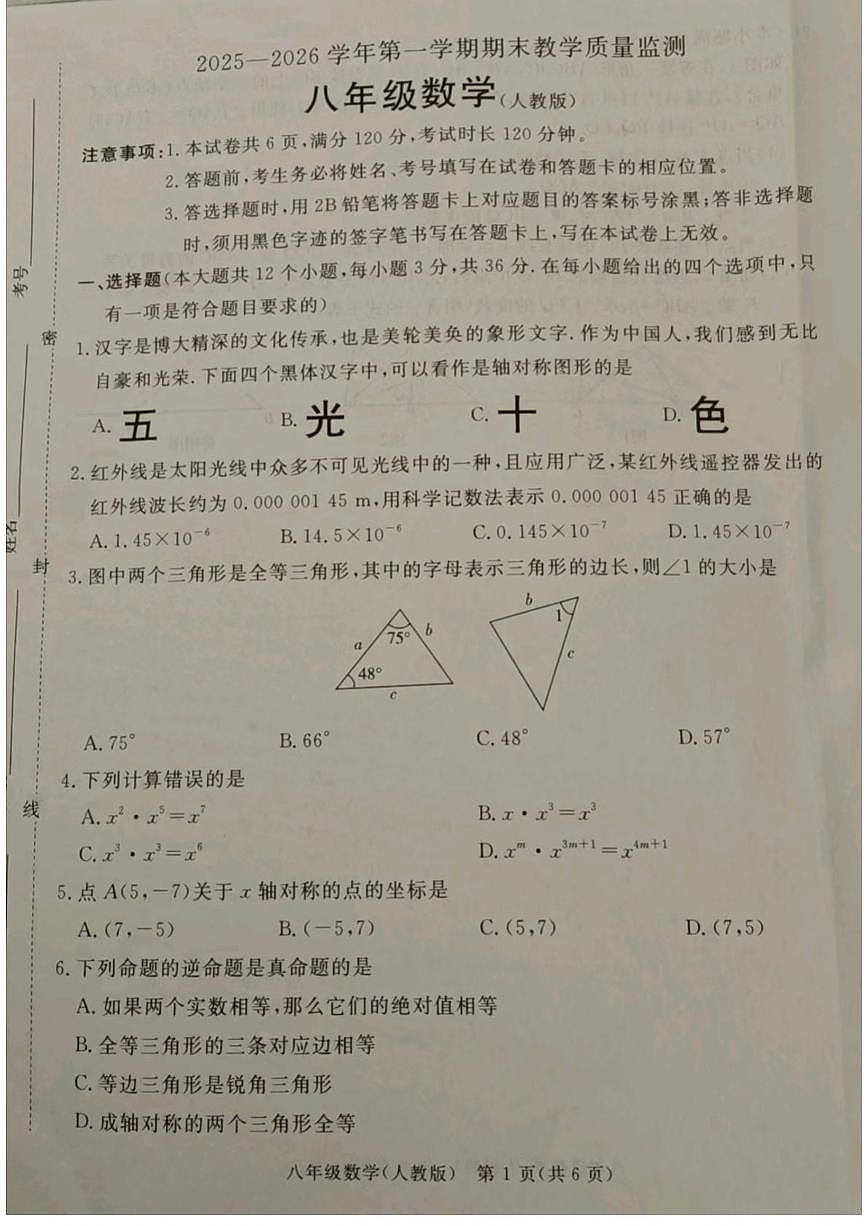 2025—2026学年第一学期期末教学质量监测
八年级数学(人教版)
注意事项:1.本试卷共6页,满分120分,考试时长120分钟。
2.答题前,考生务必将姓名、考号填写在试卷和答题卡的相应位置。
3.答选择题时,用2B铅笔将答题卡上对应题目的答案标号涂黑;答非选择题
时,须用黑色字迹的签字笔书写在答题卡上,写在本试卷上无效。
一、选择题(本大题共12个小题,每小题3分,共36分.在每小题给出的四个选项中,只
有一项是符合题目要求的)
1.汉字是博大精深的文化传承,也是美轮美奂的象形文字.作为中国人,我们感到无比
自豪和光荣.下面四个黑体汉字中,可以看作是轴对称图形的是
A.五 B.光 C.十 D.色
2.红外线是太阳光线中众多不可见光线中的一种,且应用广泛,某红外线遥控器发出的
红外线波长约为0.000 001 45 m,用科学记数法表示0.000 001 45正确的是
A.1.45×10⁻⁶ B.14.5×10⁻⁶ C.0.145×10⁻⁷ D.1.45×10⁻⁷
3.图中两个三角形是全等三角形,其中的字母表示三角形的边长,则∠1的大小是
a 75° b 48° c
b 1 c
A.75° B.66° C.48° D.57°
4.下列计算错误的是
A.x²·x⁵=x⁷ B.x·x³=x³
C.x³·x³=x⁶ D.xᵐ·x³ᵐ⁺¹=x⁴ᵐ⁺¹
5.点A(5,-7)关于x轴对称的点的坐标是
A.(7,-5) B.(-5,7) C.(5,7) D.(7,5)
6.下列命题的逆命题是真命题的是
A.如果两个实数相等,那么它们的绝对值相等
B.全等三角形的三条对应边相等
C.等边三角形是锐角三角形
D.成轴对称的两个三角形全等
八年级数学(人教版) 第1页(共6页)
考号
姓名
密
封
线